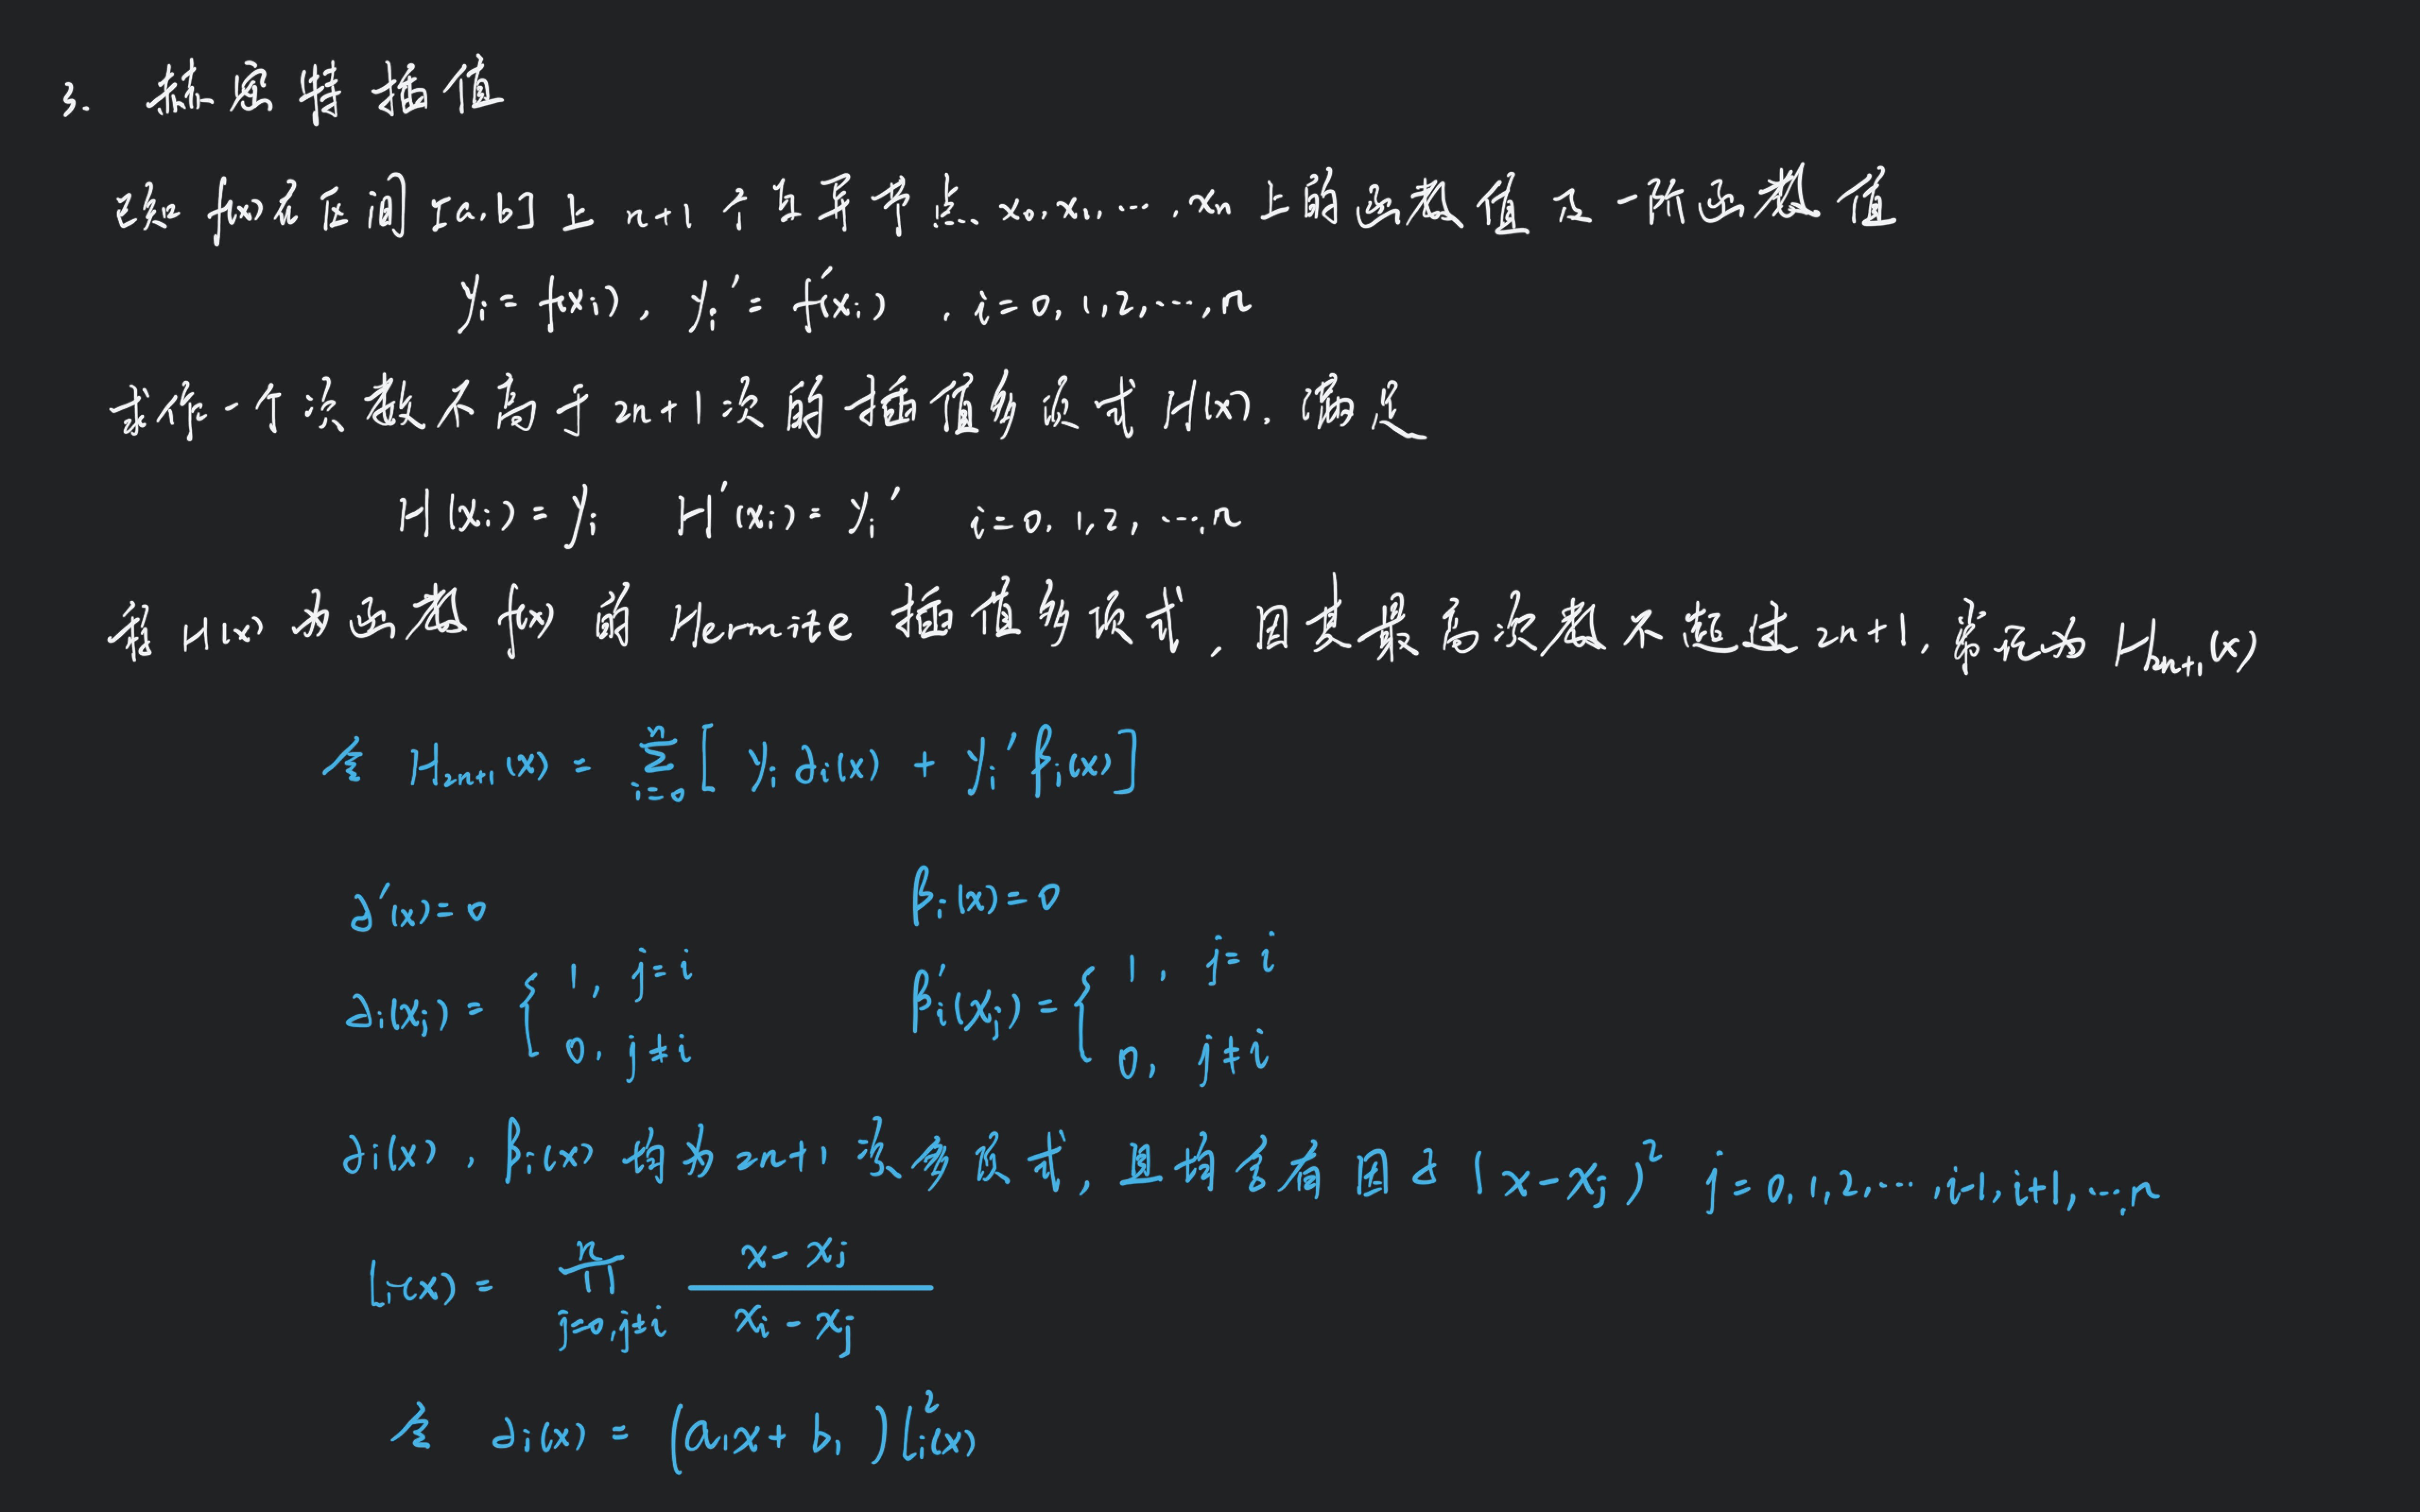 3. 赫密特插值
已知 f(x)在区间[a,b]上 n+1 个互异节点 x₀,x₁,…,xₙ 上的函数值及一阶函数值
yᵢ = f(xᵢ), yᵢ' = f'(xᵢ), i=0,1,2,…,n
求作一个次数不高于 2n+1 次的插值多项式 H(x), 满足
H(xᵢ) = yᵢ H'(xᵢ) = yᵢ' i=0,1,2,…,n
称 H(x) 为函数 f(x) 的 Hermite 插值多项式, 因其最高次数不超过 2n+1, 常记为 H₂ₙ₊₁(x)
令 H₂ₙ₊₁(x) = ∑ⁿᵢ₌₀ [ yᵢ ∂ᵢ(x) + yᵢ' βᵢ(x) ]
∂'(x) = 0 βᵢ(x) = 0
∂ᵢ(xⱼ) = { 1, j=i 0, j≠i βᵢ'(xⱼ) = { 1, j=i 0, j≠i
∂ᵢ(x), βᵢ(x) 均为 2n+1 次多项式, 且均含有因子 (x-xⱼ)² j=0,1,2,…,i-1,i+1,…,n
lᵢ(x) = ∏ⁿⱼ₌₀,ⱼ≠ᵢ (x-xⱼ)/(xᵢ-xⱼ)
令 ∂ᵢ(x) = (a₁x+b₁) lᵢ²(x)